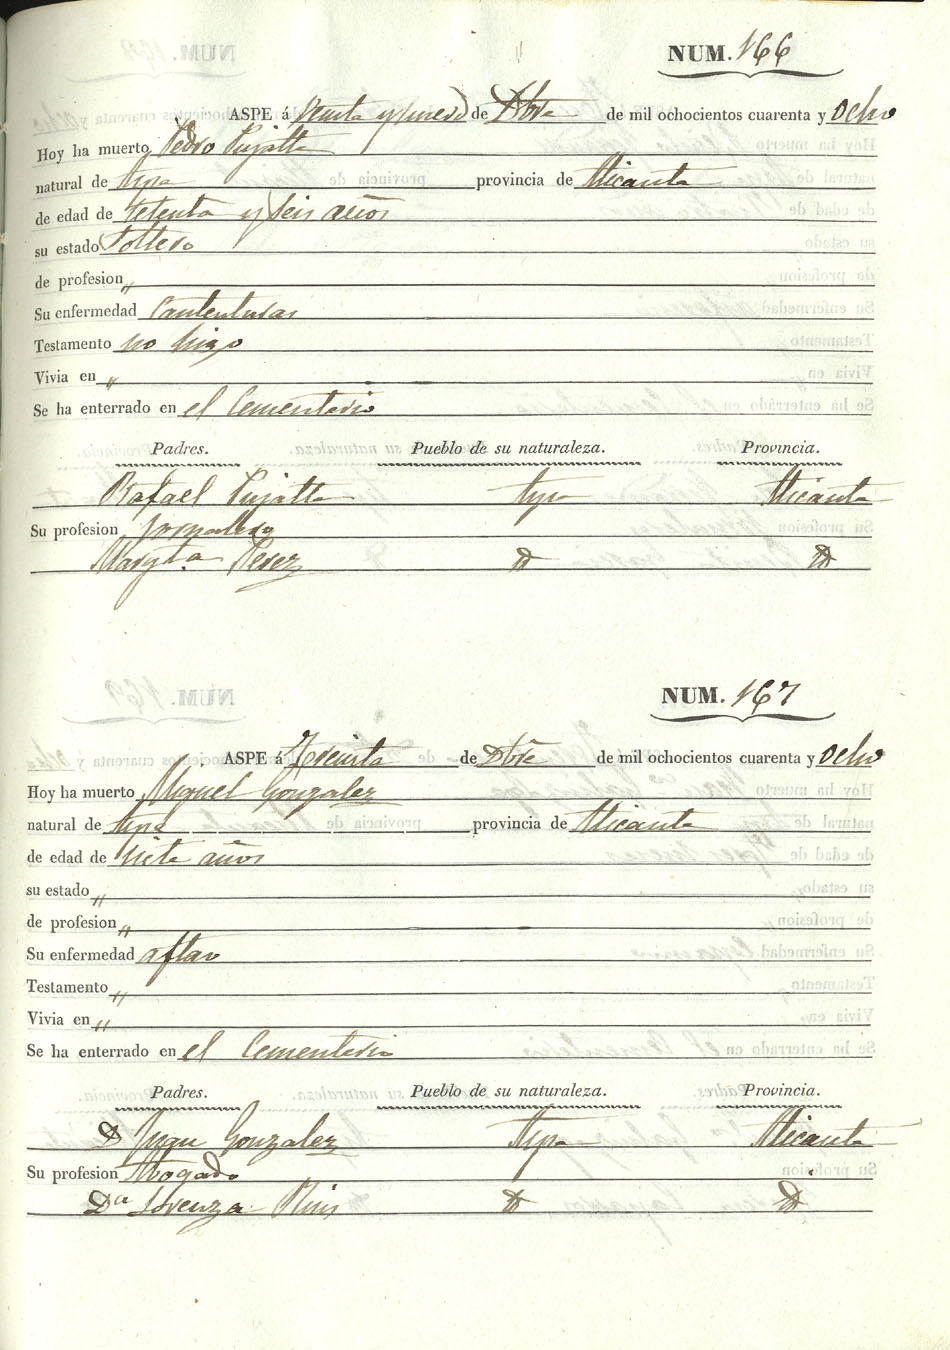 NUM. 166
ASPE á Veinta y nueve de Dbre de mil ochocientos cuarenta y Ocho
Hoy ha muerto Pedro Pujalte
natural de Aspe provincia de Alicante
de edad de Setenta y seis años
su estado Soltero
de profesion „
Su enfermedad Calenturas
Testamento no hizo
Vivia en „
Se ha enterrado en el Cementerio
Padres. Pueblo de su naturaleza. Provincia.
Rafael Pujalte Aspe Alicante
Su profesion Jornalero
Margta Perez D D
NUM. 167
ASPE á Treinta de Dbre de mil ochocientos cuarenta y Ocho
Hoy ha muerto Miguel Gonzalez
natural de Aspe provincia de Alicante
de edad de siete años
su estado „
de profesion „
Su enfermedad aftas
Testamento „
Vivia en „
Se ha enterrado en el Cementerio
Padres. Pueblo de su naturaleza. Provincia.
D Juan Gonzalez Aspe Alicante
Su profesion Abogado
Da Lorenza Ruis D D